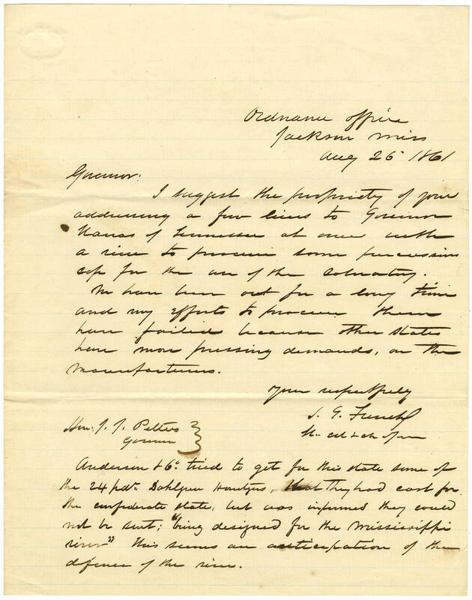 Ordnance office
Jackson Miss
Aug 26 1861
Governor:
I suggest the propriety of your
addressing a few lines to Governor
Harris of Tennessee at once with
a view to procure some percussion
caps for the use of the
We have been out for a long time
and my efforts to procure them
have failed because other states
have more pressing demands, on the
manufacturers.
Your respectfully
S. G. French
Lt. col & ch of
Hon. J. J. Pettus
Governor
Anderson & Co. tried to get for this state some of
the 24 pdr. Dahlgren Howtzrs, that they had cast for
the confederate state, but was informed they could
not be sent; "being designed for the Mississippi
river" This seems an anticipation of the
defence of the river.